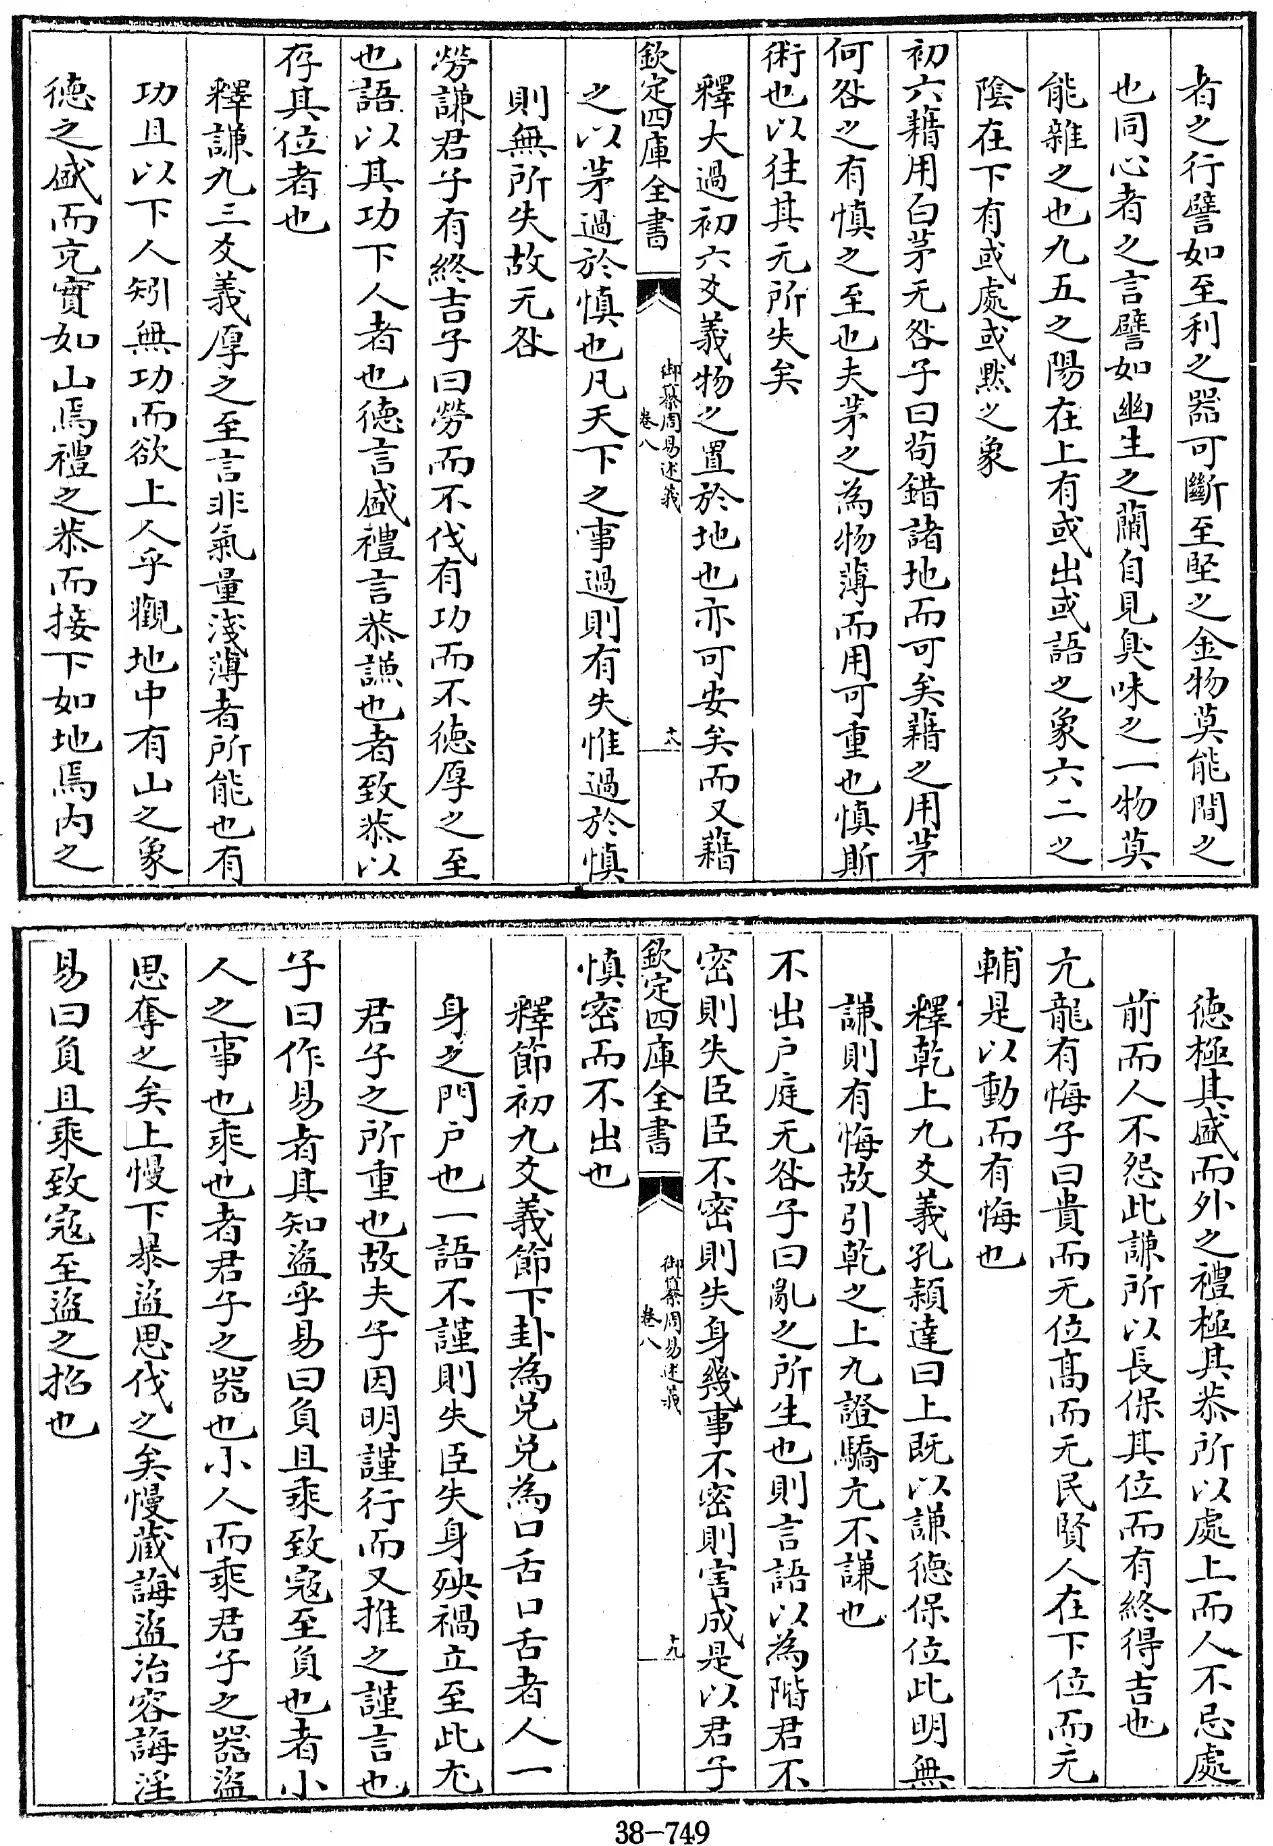 者之行譬如至利之器可斷至堅之金物莫能間之
也同心者之言譬如幽生之蘭自見臭味之一物莫
能雜之也九五之陽在上有或出或語之象六二之
陰在下有或處或默之象
初六藉用白茅无咎子曰苟錯諸地而可矣藉之用茅
何咎之有慎之至也夫茅之為物薄而用可重也慎斯
術也以往其无所失矣
釋大過初六爻義物之置於地也亦可安矣而又藉
欽定四庫全書
御纂周易述義
卷八
十八
之以茅過於慎也凡天下之事過則有失惟過於慎
則無所失故无咎
勞謙君子有終吉子曰勞而不伐有功而不徳厚之至
也語以其功下人者也徳言盛禮言恭謙也者致恭以
存其位者也
釋謙九三爻義厚之至言非氣量淺薄者所能也有
功且以下人矧無功而欲上人乎觀地中有山之象
徳之盛而充實如山焉禮之恭而接下如地焉内之
徳極其盛而外之禮極其恭所以處上而人不忌處
前而人不怨此謙所以長保其位而有終得吉也
亢龍有悔子曰貴而无位髙而无民賢人在下位而无
輔是以動而有悔也
釋乾上九爻義孔穎達曰上既以謙徳保位此明無
謙則有悔故引乾之上九證驕亢不謙也
不出户庭无咎子曰亂之所生也則言語以為階君不
密則失臣臣不密則失身幾事不密則害成是以君子
欽定四庫全書
御纂周易述義
卷八
十九
慎密而不出也
釋節初九爻義節下卦為兑兑為口舌口舌者人一
身之門户也一語不謹則失臣失身殃禍立至此尤
君子之所重也故夫子因明謹行而又推之謹言也
子曰作易者其知盗乎易曰負且乘致寇至負也者小
人之事也乘也者君子之器也小人而乘君子之器盗
思奪之矣上慢下暴盗思伐之矣慢藏誨盗冶容誨淫
易曰負且乘致寇至盗之招也
38-749